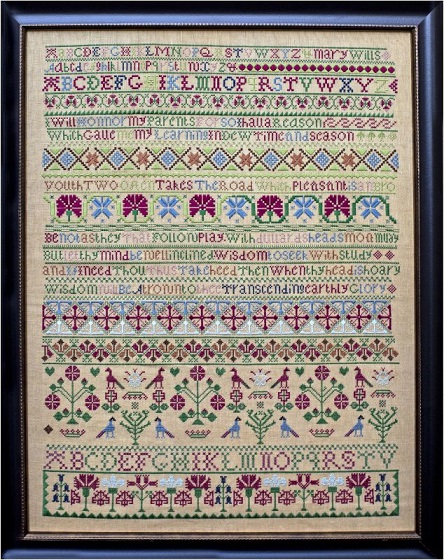 ABCDEFGHIKLMNOPQRSTVWXYZ mary Wills
ABCDEFGHIKLMNOPRSTVWXYZ
I Will Honnor my Parents For so
Which Gave me my Learning In Dew Time And season
youth Two Takes The Road Which Pleasant is
Be not as they That Follow Play With dullards heads
But let thy mind be well inclined Wisdom to seek With study
and if need Thou Thus Take heed Then When thy head is hoary
Wisdom to thee Transcending earthly Glory
ABCDEFGHIKLMNOPQRSTV